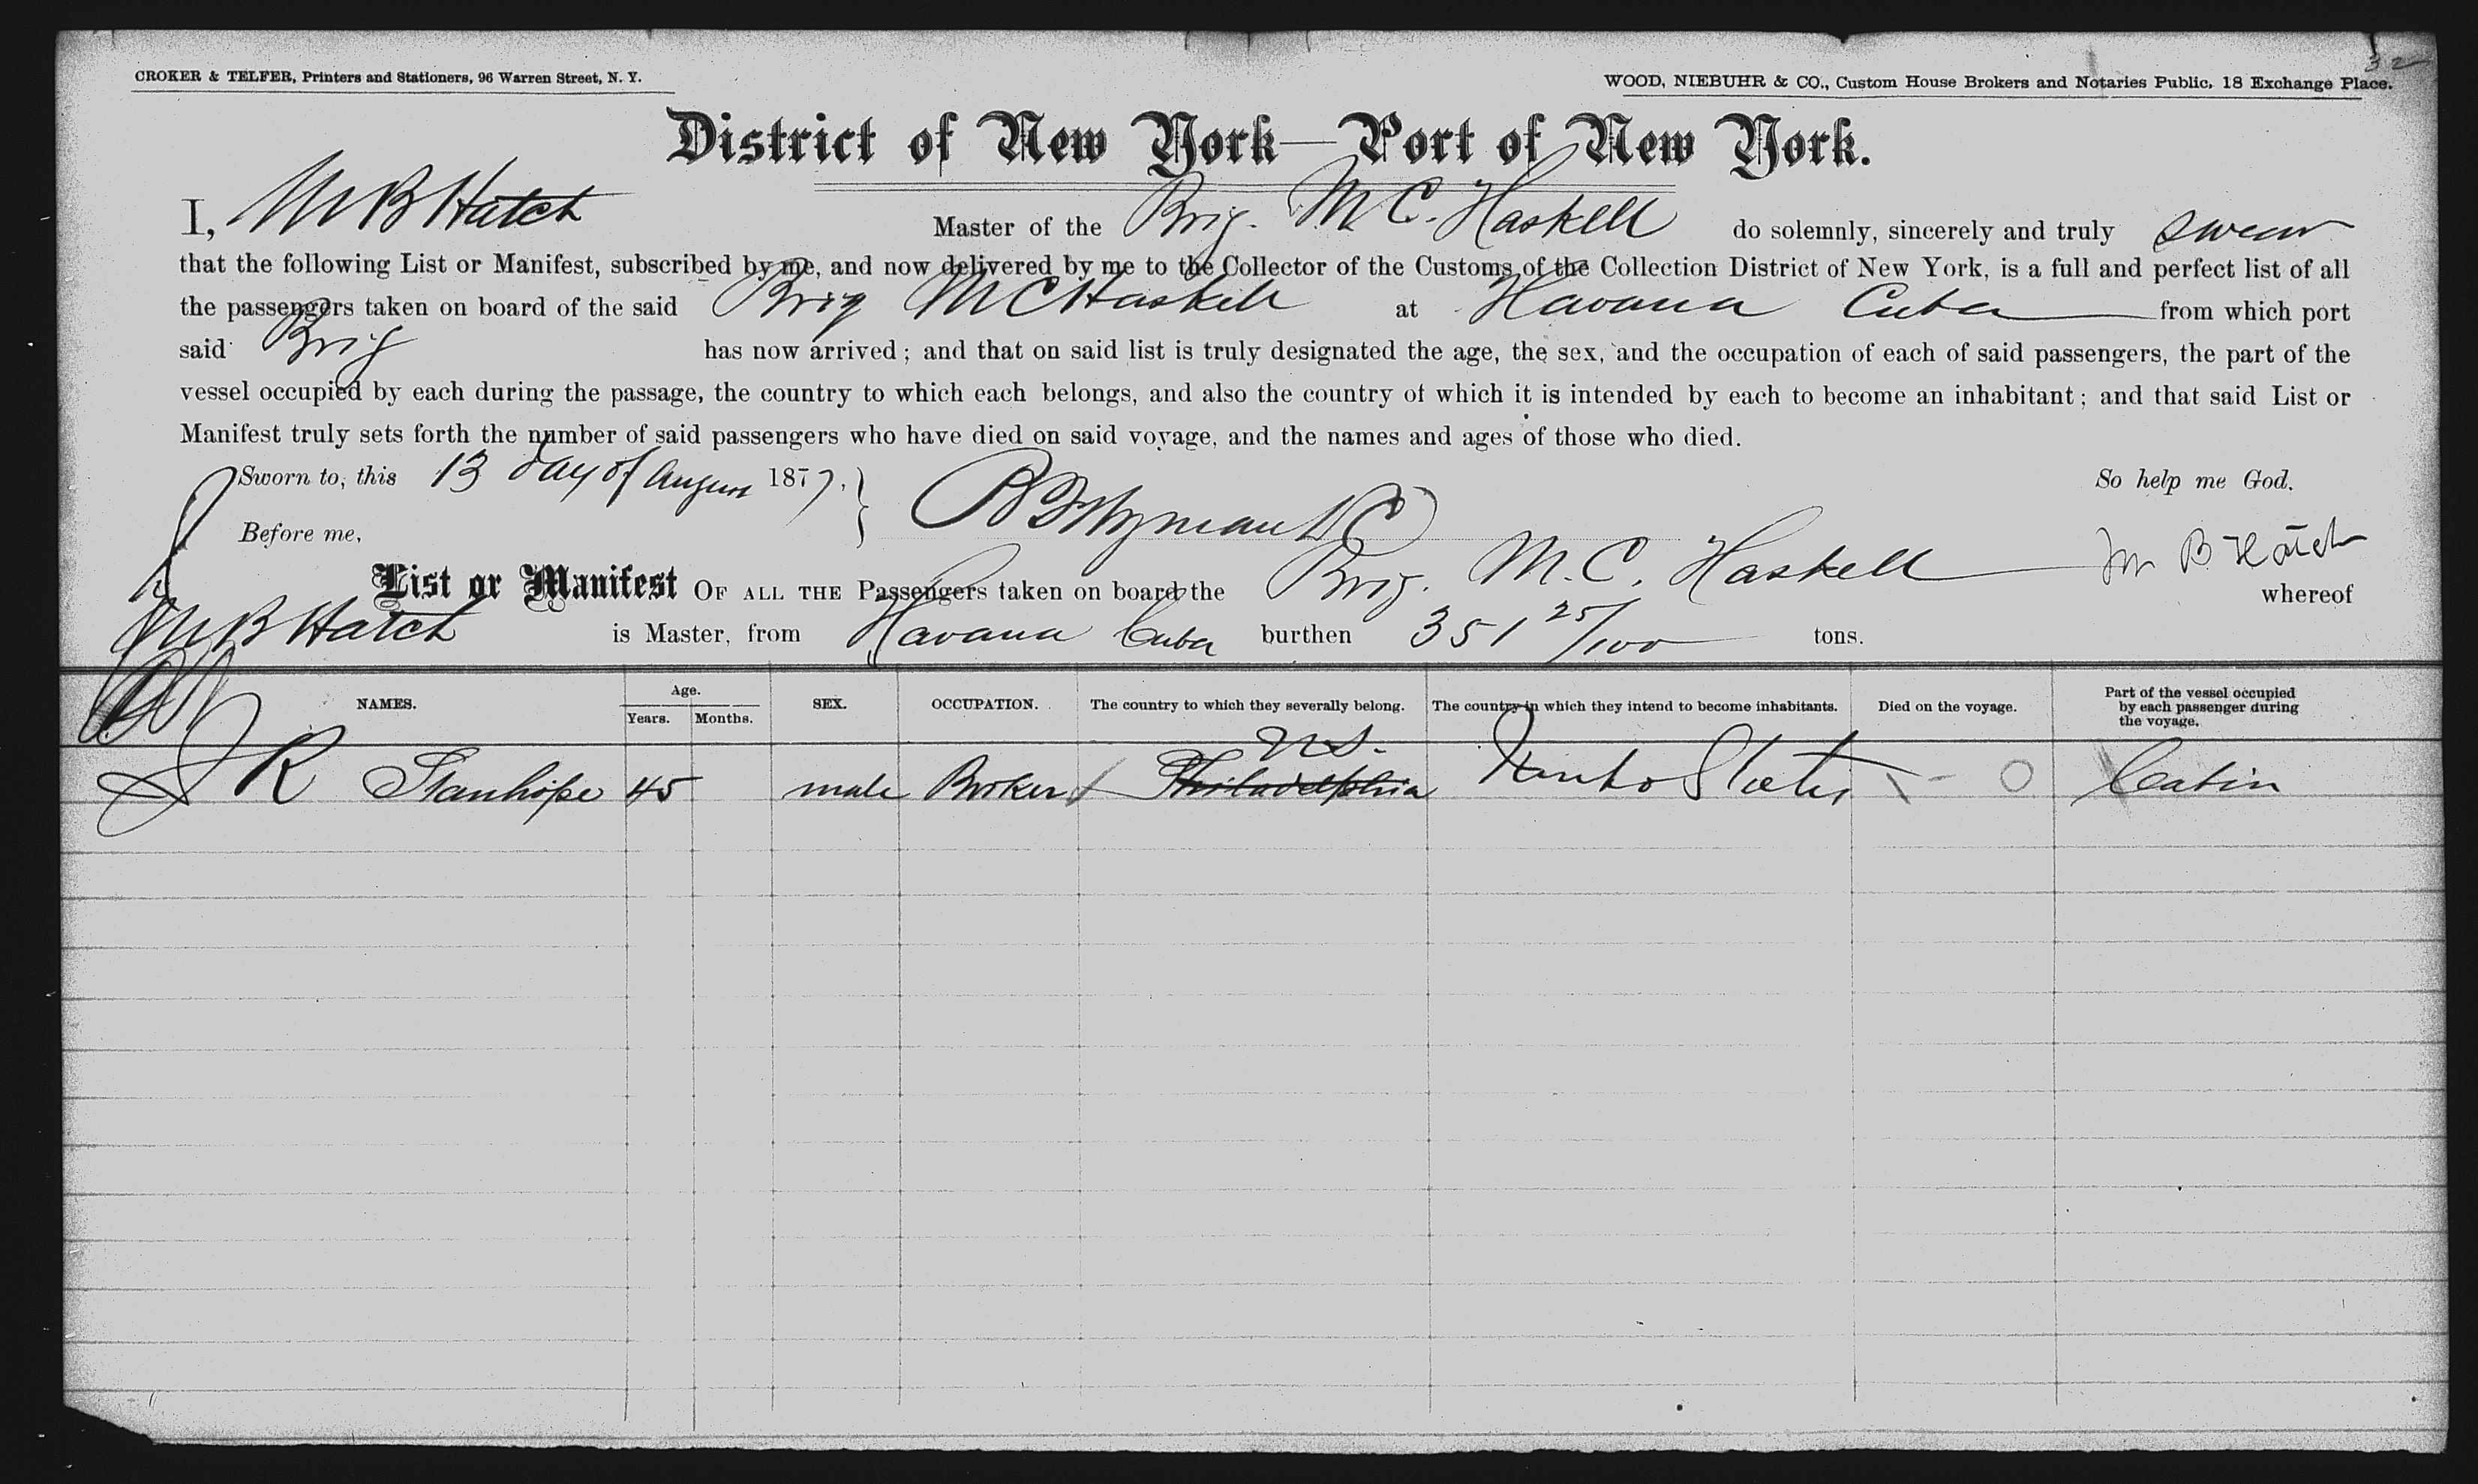 32
CROKER & TELFER, Printers and Stationers, 96 Warren Street, N. Y.
WOOD, NIEBUHR & CO., Custom House Brokers and Notaries Public, 18 Exchange Place.
District of New York—Port of New York.
I, M B Hatch Master of the Brig. M. C. Haskell do solemnly, sincerely and truly swear
that the following List or Manifest, subscribed by me, and now delivered by me to the Collector of the Customs of the Collection District of New York, is a full and perfect list of all
the passengers taken on board of the said Brig M C Haskell at Havana Cuba from which port
said Brig has now arrived; and that on said list is truly designated the age, the sex, and the occupation of each of said passengers, the part of the
vessel occupied by each during the passage, the country to which each belongs, and also the country of which it is intended by each to become an inhabitant; and that said List or
Manifest truly sets forth the number of said passengers who have died on said voyage, and the names and ages of those who died.
Sworn to, this 13 day of August 1877. So help me God.
Before me, Wyman M B Hatch
List or Manifest OF ALL THE Passengers taken on board the Brig. M. C. Haskell whereof
M B Hatch is Master, from Havana Cuba burthen 351 25/100 tons.
NAMES. Age. Years. Months. SEX. OCCUPATION. The country to which they severally belong. The country in which they intend to become inhabitants. Died on the voyage. Part of the vessel occupied by each passenger during the voyage.
U.S.
J R Stanhope 45 male Broker Philadelphia United States - O Cabin